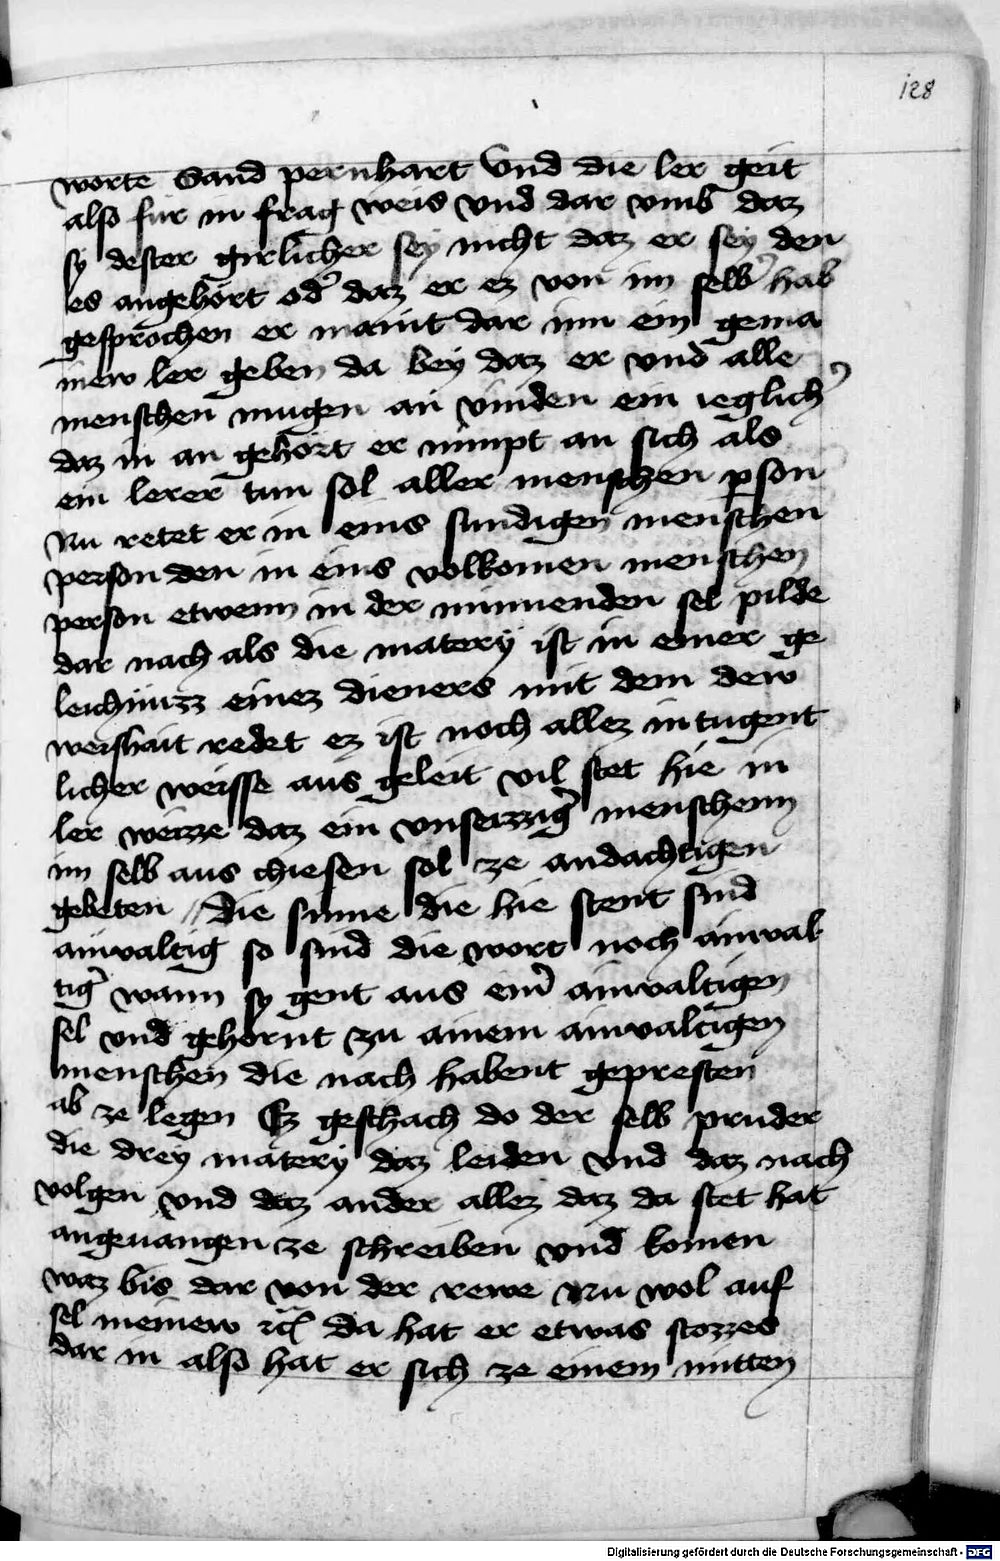 128
worte Sand pernhart Vnd die ler geit
also fur in frag weis vnd dar vmb daz
sy dester girlicher sey nicht daz er sey den
es angehort od' daz er ez von im selb' hab
gesprochen er maint dar inn ein gema
inew ler geben da bey daz er vnd alle
menschen mugen an vinden ein ieglich'
daz in an gehort er nimpt an sich als
ein lerer tun sol aller menschen pson
Nu retet er in eins sundigen menschen
person den in eins volkomen menschen
person etwenn in der minnenden sel pilde
dar nach als die matery ist in einer ge
leichnuzz einez dieners mit dem dew
weishait redet ez ist noch allez in tugent
licher weisse aus geleit vil stet hie in
ler weizze daz ein vnseizzig' menschenn
im selb aus chiesen sol ze andachtigen
gebeten // die sinne die hie stent sind
ainvaltig so sind die wort noch ainval
tig' wann sy gent aus ein' ainvaltigen
sel vnd gehornt zu ainem ainvaltigen
menschen die nach habent gepresten
ab ze legen Ez geschach do der selb pruder
die drey matery daz leiden vnd daz nach
volgen vnd daz ander allez daz da stet hat
angeuangen ze schreiben vnd komen
waz bis dar von der rewe Nu wol auf
sel meinew da hat er etwas stozzes
dar in also hat er sich ze einem mitten
Digitalisierung gefördert durch die Deutsche Forschungsgemeinschaft - DFG